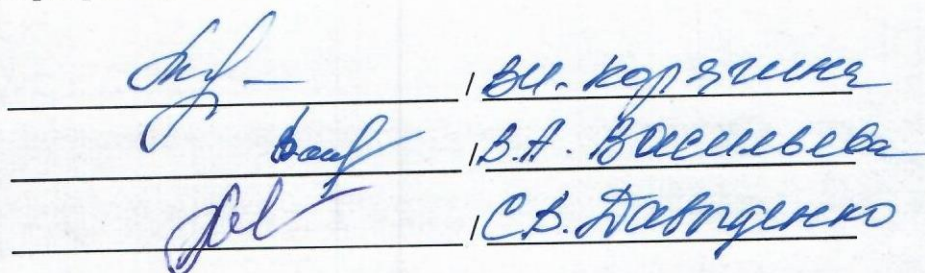 / В.И. Корягина
/ В.А. Васильева
/ С.В. Давыденко